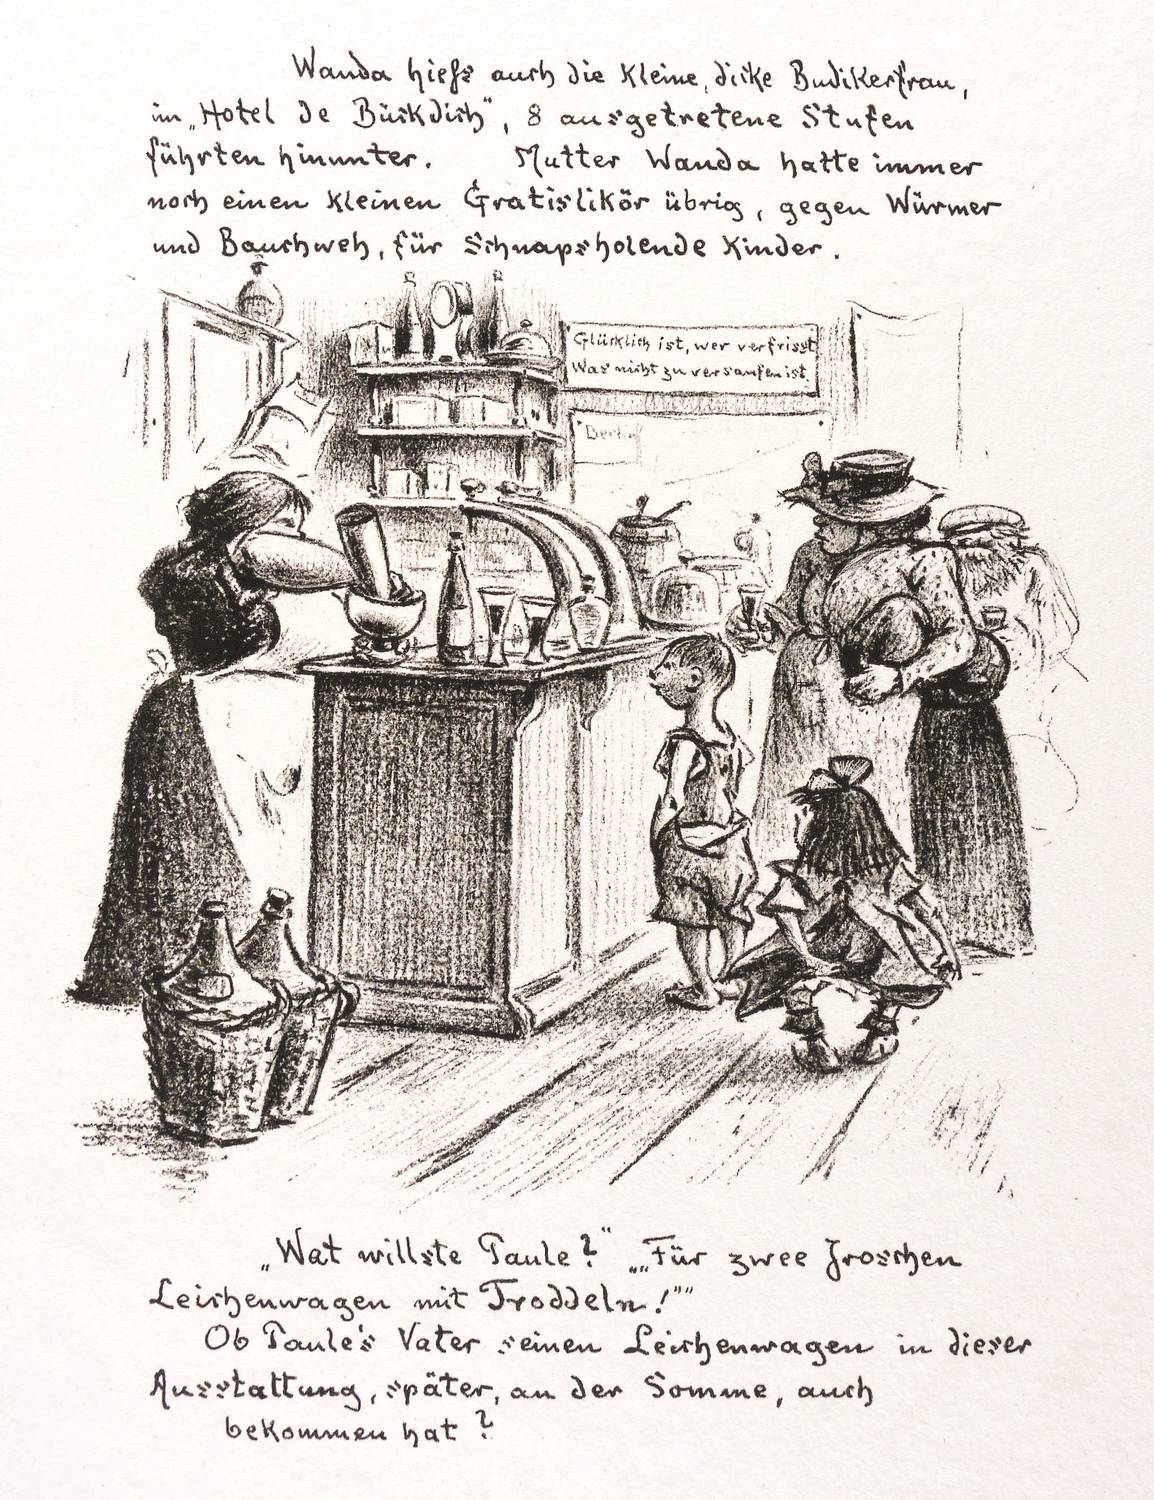 Wanda hieß auch die kleine, dicke Budikerfrau,
im „Hotel de Bückdich", 8 ausgetretene Stufen
führten hinunter. Mutter Wanda hatte immer
noch einen kleinen Gratislikör übrig, gegen Würmer
und Bauchweh, für Schnapsholende Kinder.
Glücklich ist, wer verfrisst
Was nicht zu versaufen ist.
Berlin
„Wat willste Paule?" „„Für zwee Jroschen
Leichenwagen mit Troddeln!""
Ob Paule's Vater seinen Leichenwagen in dieser
Ausstattung, später, an der Somme, auch
bekommen hat?